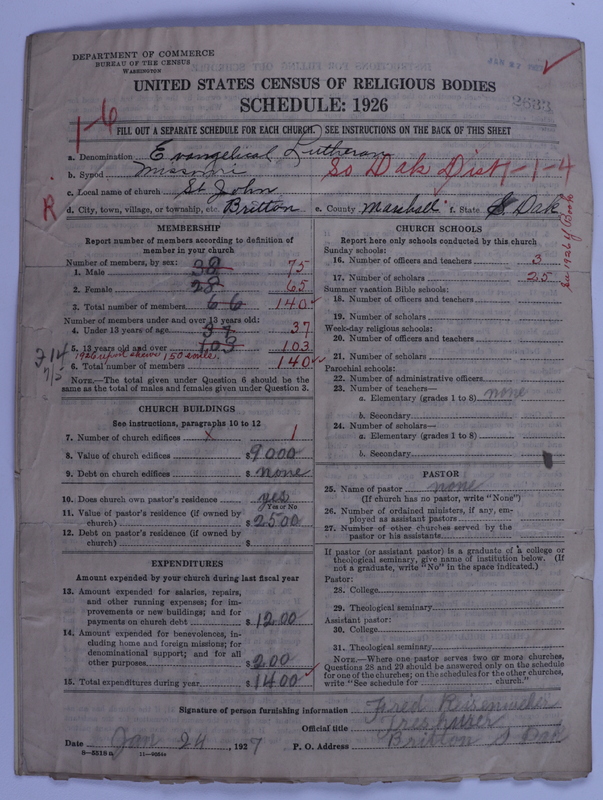 DEPARTMENT OF COMMERCE
BUREAU OF THE CENSUS
WASHINGTON
UNITED STATES CENSUS OF RELIGIOUS BODIES
SCHEDULE: 1926
2633
1-6
FILL OUT A SEPARATE SCHEDULE FOR EACH CHURCH. SEE INSTRUCTIONS ON THE BACK OF THIS SHEET
a. Denomination Evangelical Lutheran
b. Synod Missouri So Dak Dist 1-1-4
c. Local name of church St John
R
d. City, town, village, or township, etc. Britton e. County Marshall f. State S Dak
MEMBERSHIP
Report number of members according to definition of member in your church
Number of members, by sex:
1. Male 38 75
2. Female 28 65
3. Total number of members 66 140
Number of members under and over 13 years old:
4. Under 13 years of age 37 37
5. 13 years old and over 103 103
6. Total number of members 140
NOTE.—The total given under Question 6 should be the same as the total of males and females given under Question 3.
CHURCH BUILDINGS
See instructions, paragraphs 10 to 12
7. Number of church edifices x 1
8. Value of church edifices $ 9000
9. Debt on church edifices $ none
10. Does church own pastor's residence yes
Yes or No
11. Value of pastor's residence (if owned by church) $ 2500
12. Debt on pastor's residence (if owned by church) $
EXPENDITURES
Amount expended by your church during last fiscal year
13. Amount expended for salaries, repairs, and other running expenses; for improvements or new buildings; and for payments on church debt $ 1200
14. Amount expended for benevolences, including home and foreign missions; for denominational support; and for all other purposes $ 200
15. Total expenditures during year $ 1400
CHURCH SCHOOLS
Report here only schools conducted by this church
Sunday schools:
16. Number of officers and teachers 3
17. Number of scholars 25
Summer vacation Bible schools:
18. Number of officers and teachers
19. Number of scholars
Week-day religious schools:
20. Number of officers and teachers
21. Number of scholars
Parochial schools:
22. Number of administrative officers
23. Number of teachers—
a. Elementary (grades 1 to 8) none
b. Secondary
24. Number of scholars—
a. Elementary (grades 1 to 8)
b. Secondary
PASTOR
25. Name of pastor none
(If church has no pastor, write "None")
26. Number of ordained ministers, if any, employed as assistant pastors
27. Number of other churches served by the pastor or his assistants
If pastor (or assistant pastor) is a graduate of a college or theological seminary, give name of institution below. (If not a graduate, write "No" in the space indicated.)
Pastor:
28. College
29. Theological seminary
Assistant pastor:
30. College
31. Theological seminary
NOTE.—Where one pastor serves two or more churches, Questions 28 and 29 should be answered only on the schedule for one of the churches; on the schedules for the other churches, write "See schedule for church."
Signature of person furnishing information Fred
Official title Treasurer
Date Jan 24, 1927 P. O. Address Britton S Dak